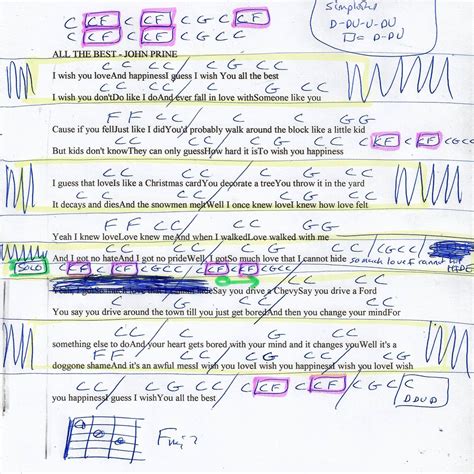 C CF CF C G C C simplified
C CF CF C G C C D-DU-U-DU
= D-DU
ALL THE BEST - JOHN PRINE
C C C C C G C C
I wish you loveAnd happinessI guess I wish You all the best
I wish you don'tDo like I doAnd ever fall in love withSomeone like you
F F C C G G
Cause if you fellJust like I didYou'd probably walk around the block like a little kid
But kids don't knowThey can only guessHow hard it isTo wish you happiness
I guess that loveIs like a Christmas cardYou decorate a treeYou throw it in the yard
It decays and diesAnd the snowmen meltWell I once knew loveI knew how love felt
Yeah I knew loveLove knew meAnd when I walkedLove walked with me
And I got no hateAnd I got no prideWell, I gotSo much love that I cannot hide so much love I cannot but HIDE
SOLO C CF CF CGCC CF CF CGCC
Say you drive a ChevySay you drive a Ford
You say you drive around the town till you just get boredAnd then you change your mindFor
something else to doAnd your heart gets bored with your mind and it changes youWell it's a
doggone shameAnd it's an awful messI wish you loveI wish you happinessI wish you loveI wish
C C C G C C C CF CF C G C C
you happinessI guess I wishYou all the best DDUD